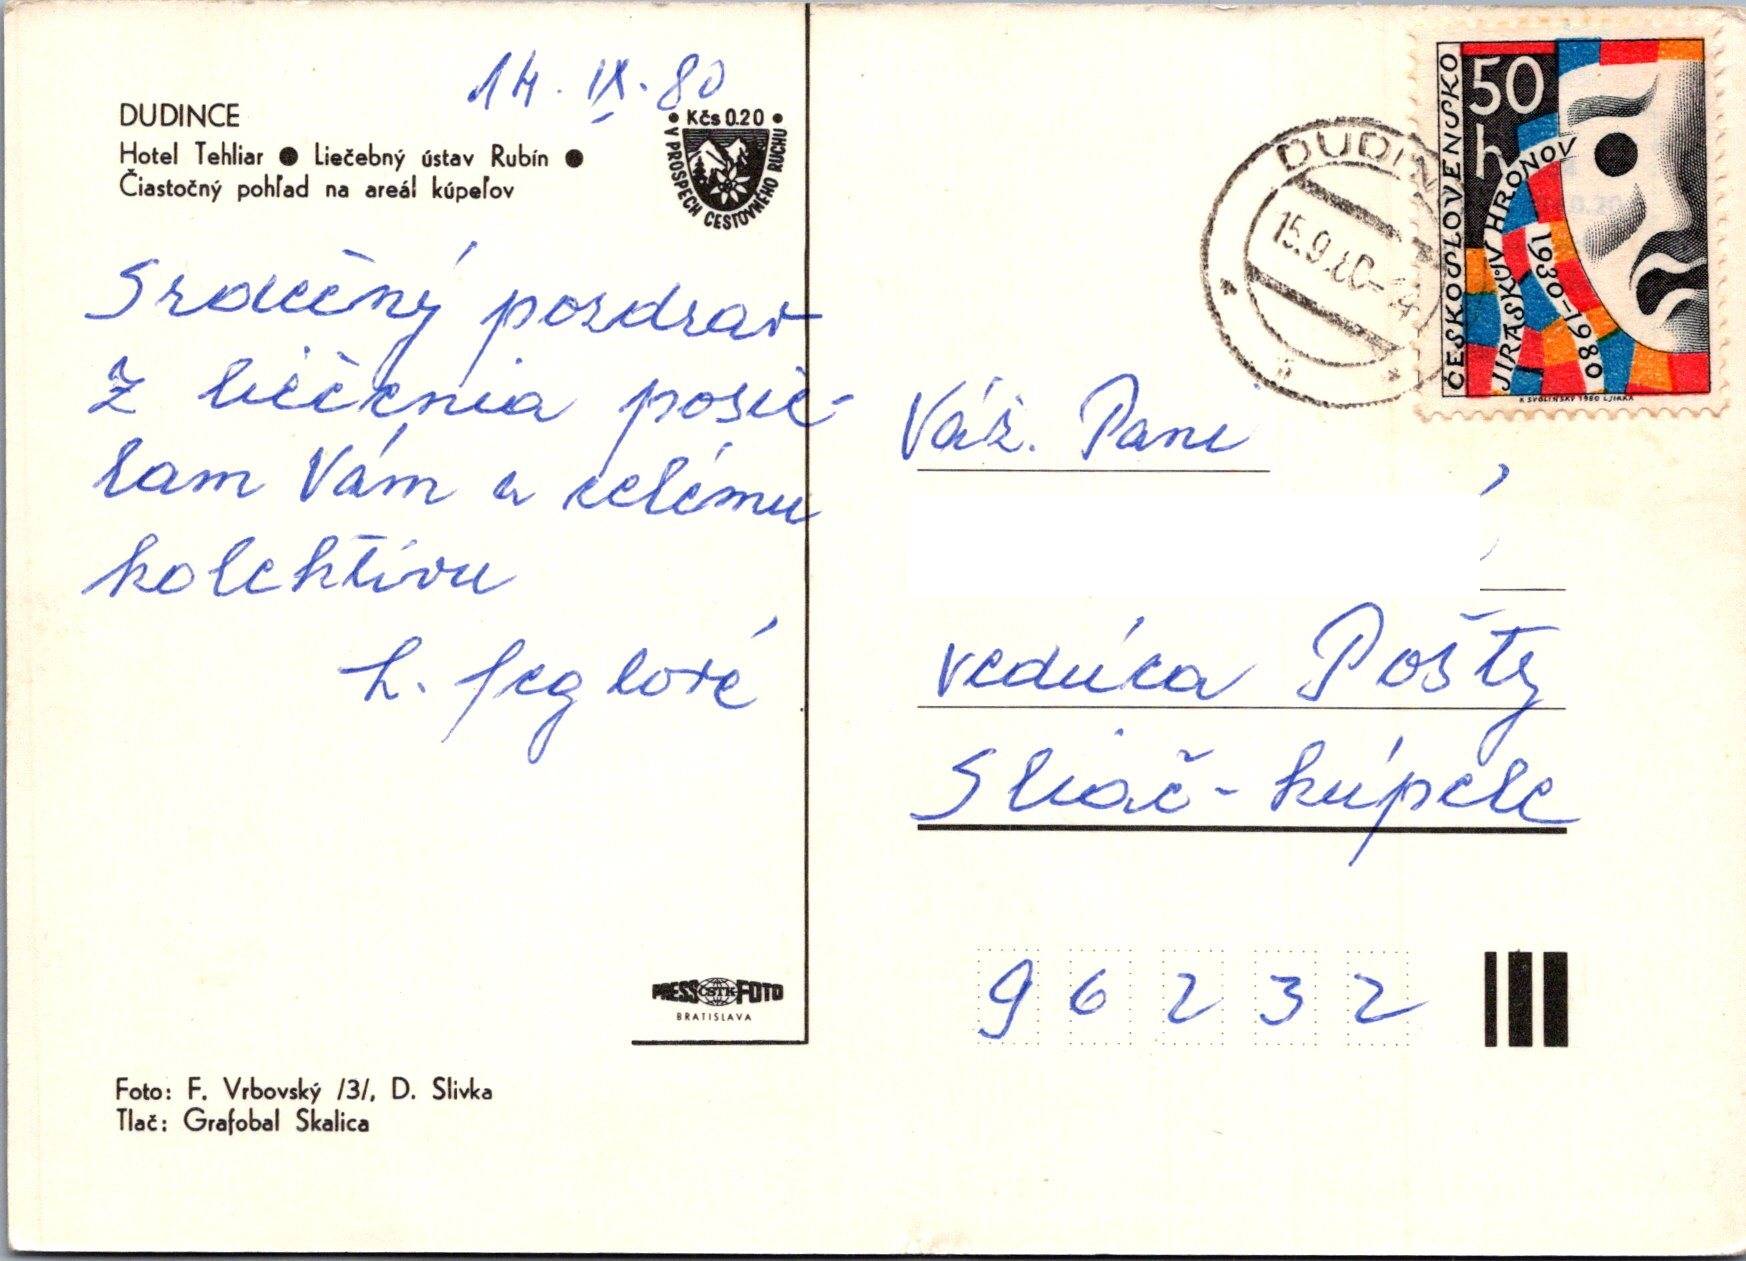 14. IX. 80
DUDINCE
Hotel Tehliar ● Liečebný ústav Rubín ●
Čiastočný pohľad na areál kúpeľov
• Kčs 0.20 •
V PROSPECH CESTOVNÉHO RUCHU
Srdečný pozdrav
z liečenia posie-
lam Vám a celému
kolektívu
PRESS ČSTK FOTO
BRATISLAVA
Foto: F. Vrbovský /3/, D. Slivka
Tlač: Grafobal Skalica
DUDIN
15.9.80-14
ČESKOSLOVENSKO
50
h
JIRÁSKŮV HRONOV
1930-1980
K. SVOLINSKÝ 1980 L. JIRKA
Váž. Pani
vedúca Pošty
Sliač - kúpele
96232